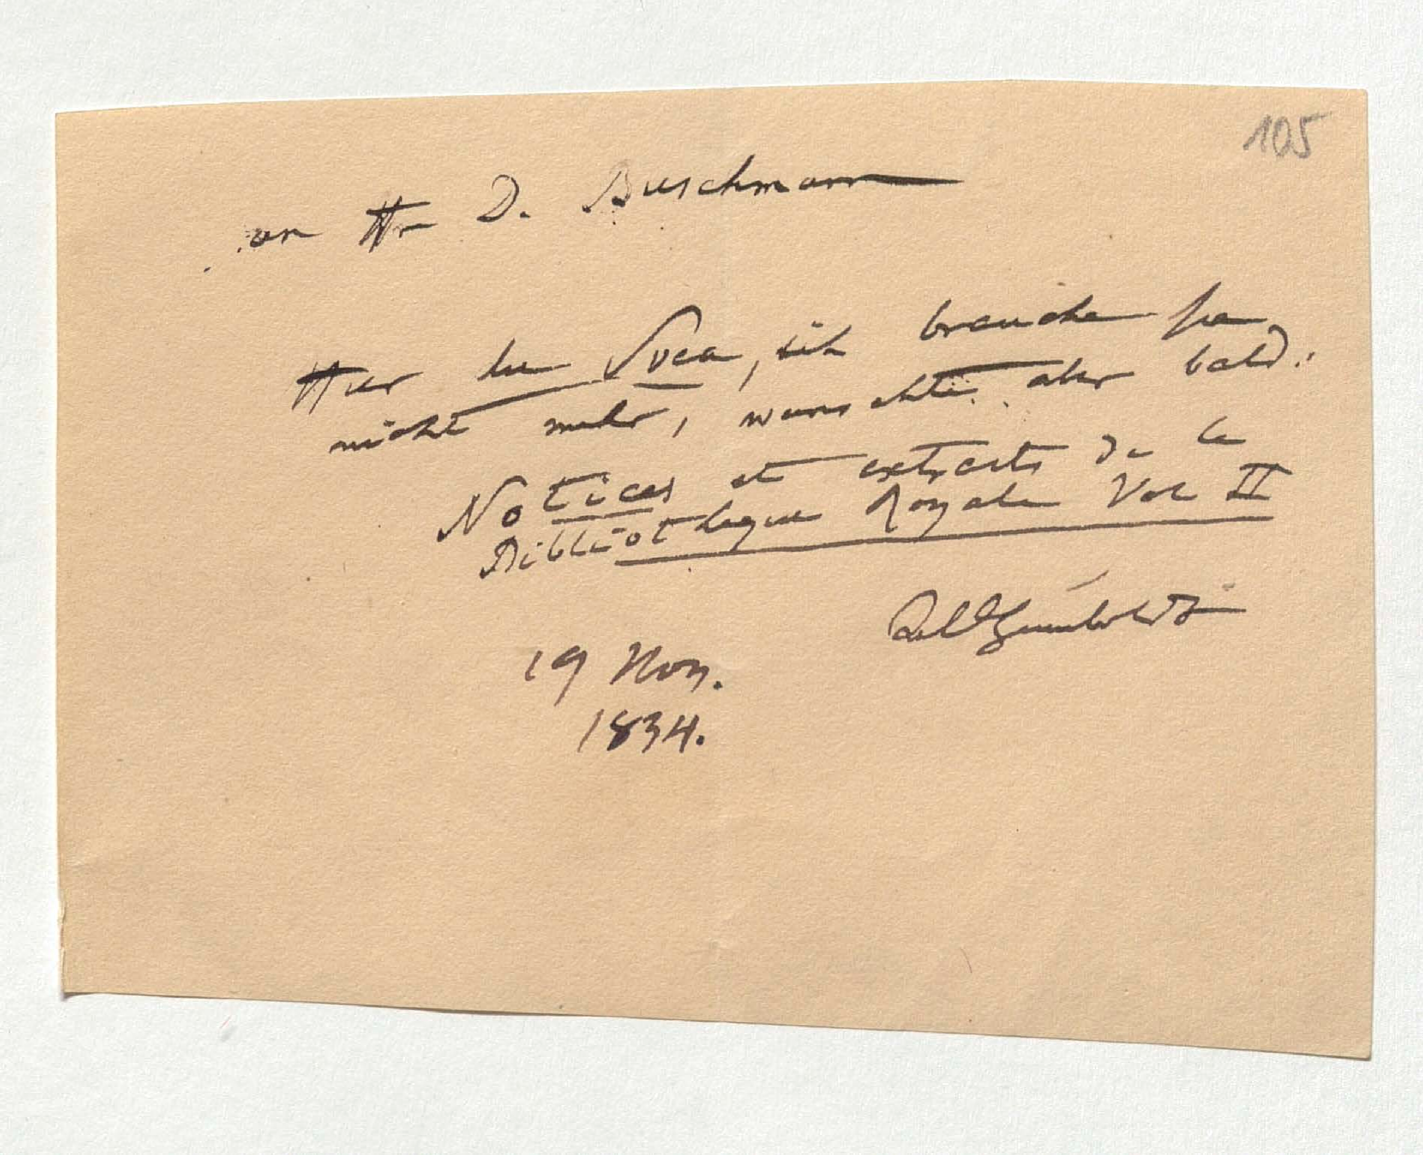 105
an Hr D. Buschmann
Hier die Soca, ich brauche sie
nicht mehr, wünschte aber bald:
Notices et extraits de la
Bibliotheque Royale Vol II
AlHumboldt
19 Nov.
1834.